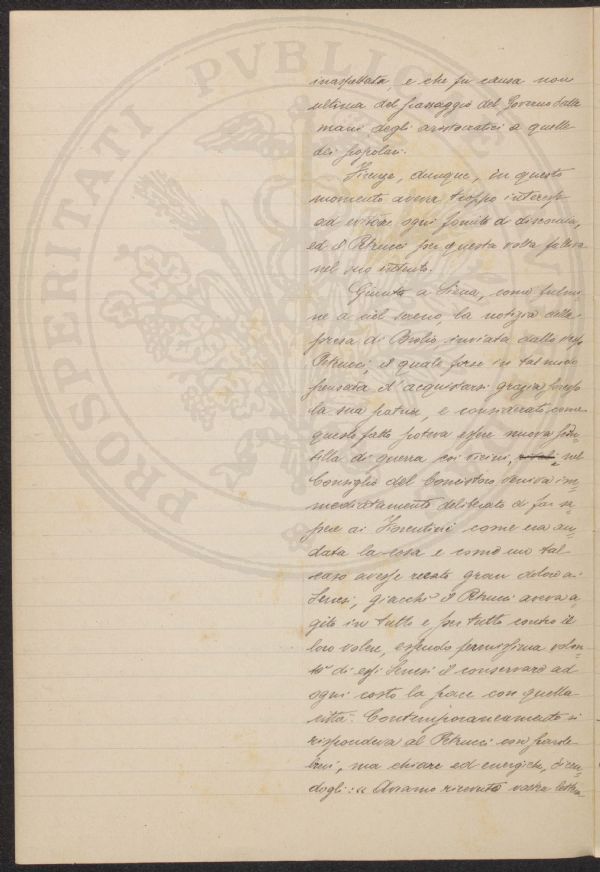 inaspettata, e che fu causa non
ultima del passaggio del Governo dalle
mani degli aristocratici a quelle
dei popolari.
Firenze, dunque, in questo
momento aveva troppo interesse
ad evitare ogni fomite di discordia,
ed il Petrucci per questa volta falliva
nel suo intento.
Giunta a Siena, come fulmi=
ne a ciel sereno, la notizia della
presa di Brolio, inviata dallo stesso
Petrucci, il quale forse in tal modo
pensava d'acquistarsi grazia presso
la sua patria, e considerato come
questo fatto poteva essere nuova scin=
tilla di guerra coi vicini, nel
Consiglio del Concistoro veniva im=
mediatamente deliberato di far sa=
pere ai Fiorentini come era an=
data la cosa e come un tal
caso avesse recato gran dolore ai
Senesi, giacchè il Petrucci aveva a=
gito in tutto e per tutto contro il
loro volere, essendo fermissima volon=
tà di essi Senesi il conservare ad
ogni costo la pace con quella
città. Contemporaneamente si
rispondeva al Petrucci con parole
brevi, ma chiare ed energiche, dicen=
dogli: « Avemo ricevuto vostra lettera
PROSPERITATI PVBLICAE